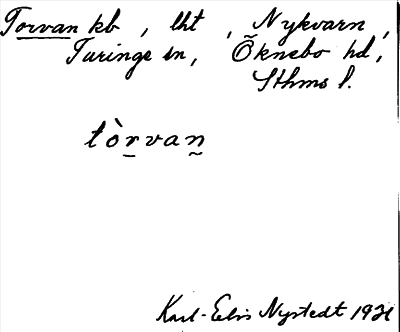 Torvan kb, lht, Nykvarn,
Turinge sn, Öknebo hd,
Sthms l.
tòrvan
Karl-Eelis Nystedt 1931